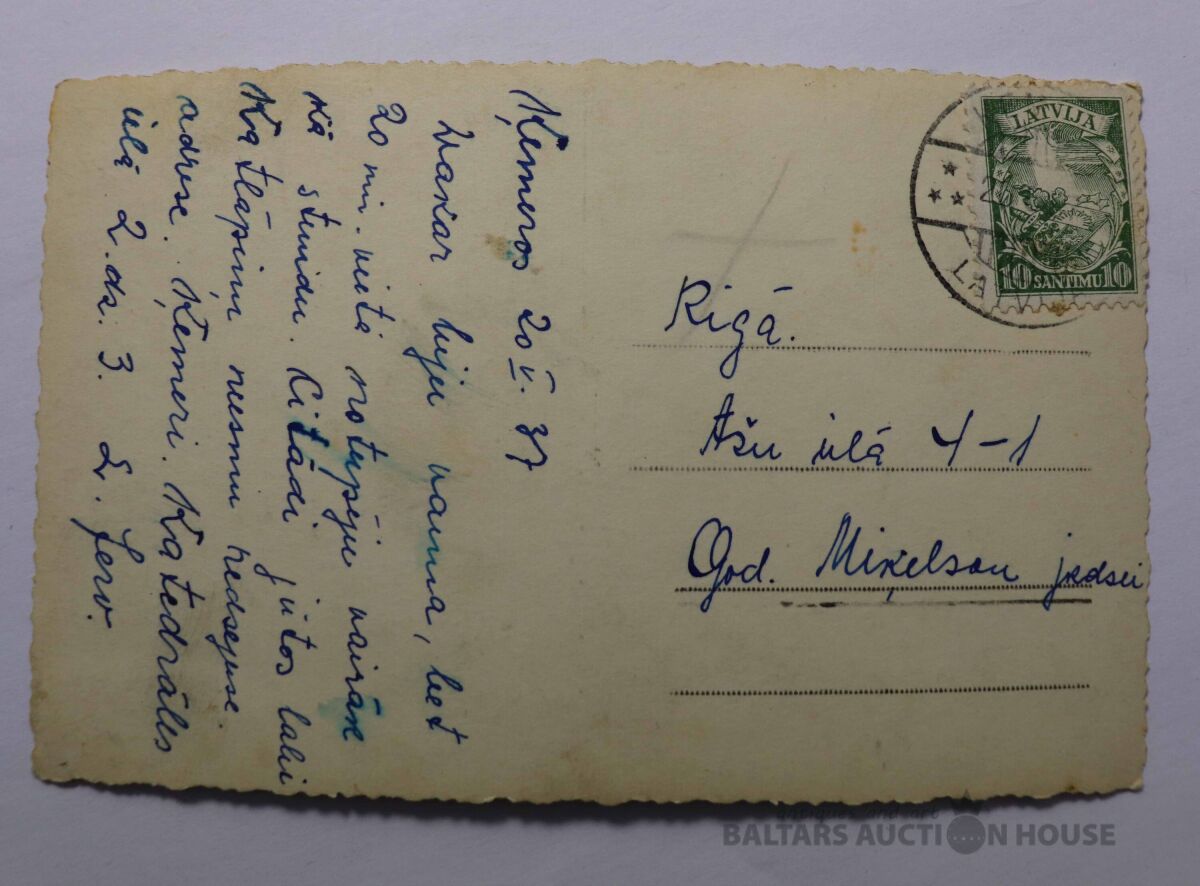 Ķemeros 20 V. 37
Wakar biju wanna, bet
20 min. weitā notupēju wairāk
kā stundu. Citādi jūtos labi
Katlāpiņu neesmu redsejuse.
adrese. Ķemeri. Katedrāles
ielā 2. ds. 3. L. Jerv.
LATVIJA
10 SANTIMU 10
LATVIJA
Rigā.
Ašu ielā 4-1
God. Miķelson jkdsei
antiques and art
BALTARS AUCTION HOUSE